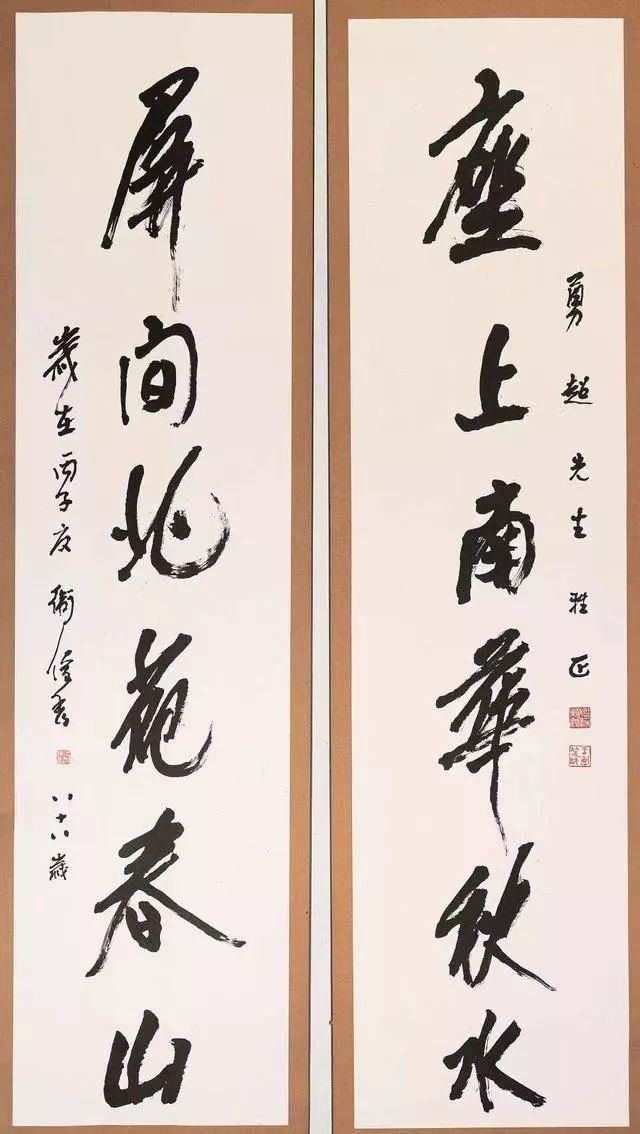 座上南華秋水
勇超先生雅正
屏間北苑春山
歲在丙子夏 衛俊秀
八十八歲